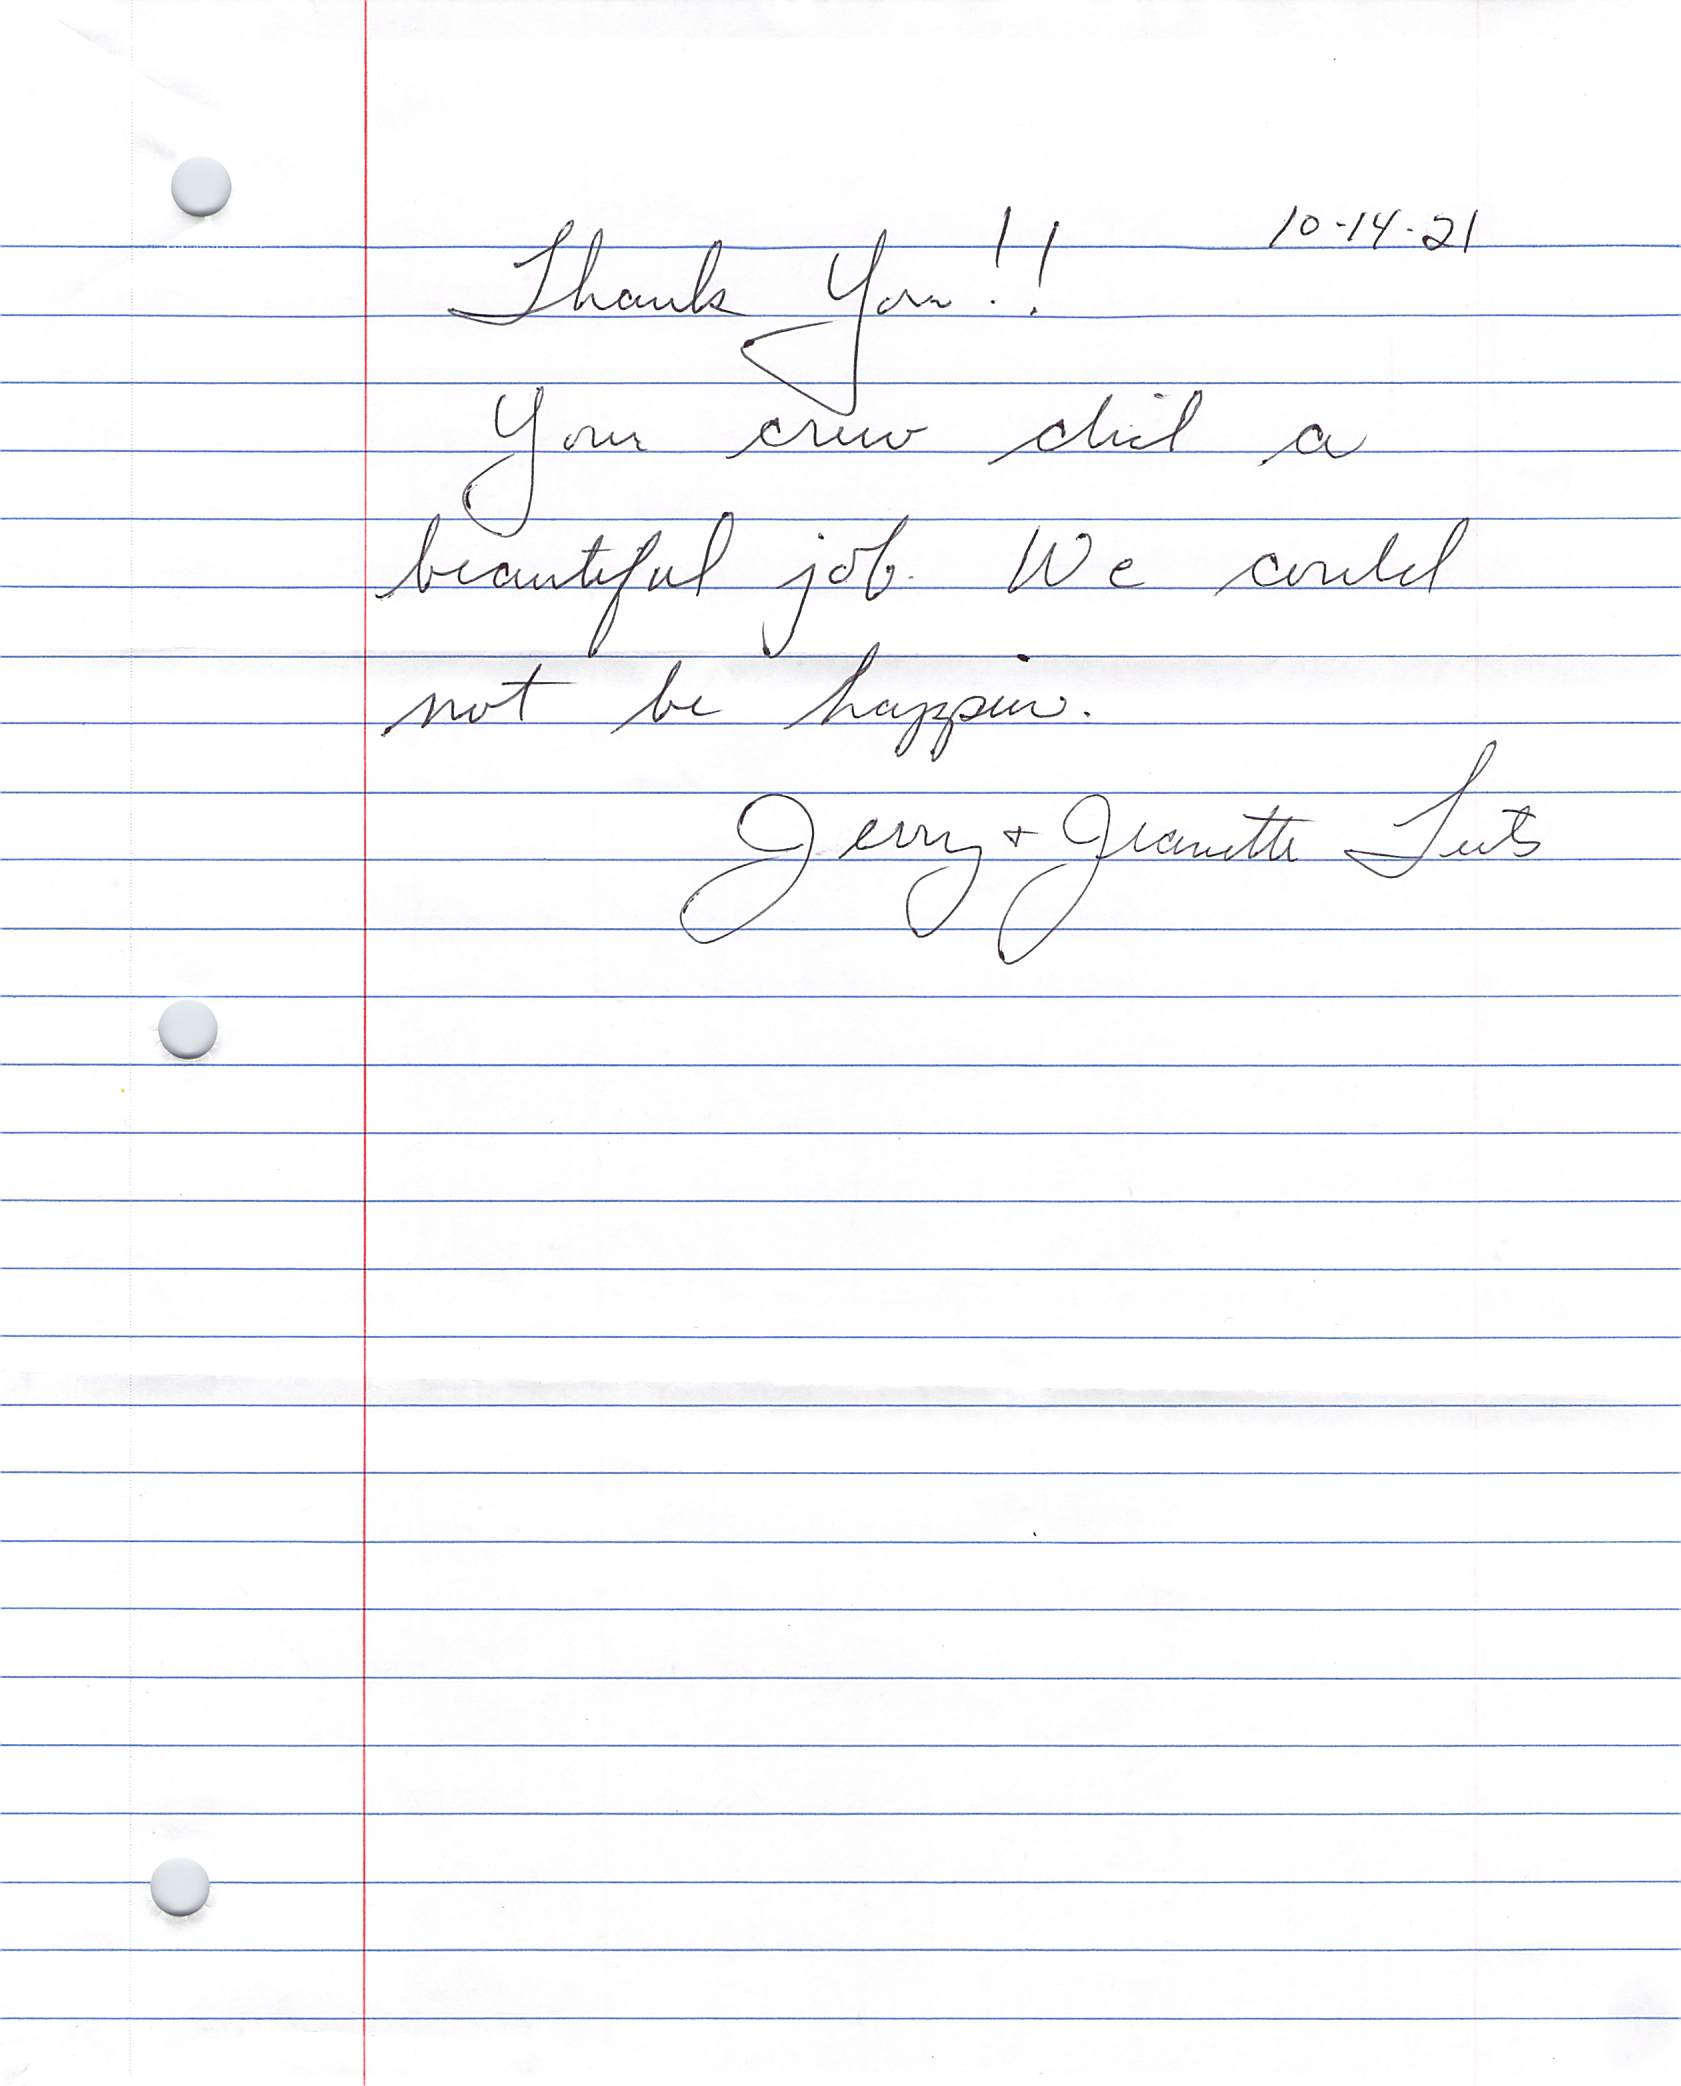 10-14-21
Thank You!!
Your crew did a
beautiful job. We could
not be happier.
Jerry + Jeanette